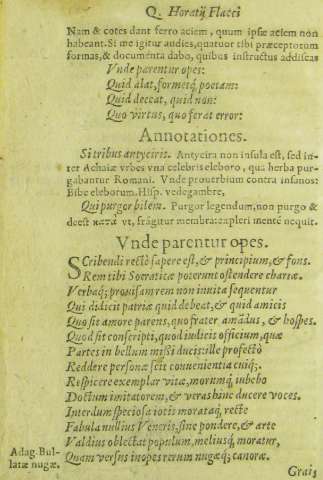 Q. Horatij Flacci
Nam & cotes dant ferro aciem, quum ipsæ aciem non
habeant. Si me igitur audies, quatuor tibi præceptorum
formas, & documenta dabo, quibus instructus addiscas
Vnde parentur opes:
Quid alat, formetq; poetam:
Quid deceat, quid non:
Quo virtus, quo ferat error:
Annotationes.
Si tribus antyciris. Antycira non insula est, sed in-
ter Achaiæ vrbes vna celebris eleboro, qua herba pur-
gabantur Romani. Vnde prouerbium contra insanos:
Bibe eleborum. Hisp. vedegambre,
Qui purgor bilem. Purgor legendum, non purgo &
deest κατὰ vt, frāgitur membra: expleri mentē nequit.
Vnde parentur opes.
SCribendi rectè sapere est, & principium, & fons.
Rem tibi Socraticæ poterunt ostendere chartæ.
Verbaq; prouisam rem non inuita sequentur
Qui didicit patriæ quid debeat, & quid amicis
Quo sit amore parens, quo frater amādus, & hospes.
Quod sit conscripti, quod iudicis officium, quæ
Partes in bellum missi ducis: ille profectò
Reddere personæ scit conuenientia cuiq;.
Respicere exemplar vitæ, morumq; iubebo
Doctum imitatorem, & veras hinc ducere voces.
Interdum speciosa iocis morataq́; rectè
Fabula nullius Veneris, sine pondere, & arte
Valdius oblectat populum, meliusq; moratur,
Adag. Bul-
latæ nugæ.
Quam versus inopes rerum nugæq́; canoræ.
Grais